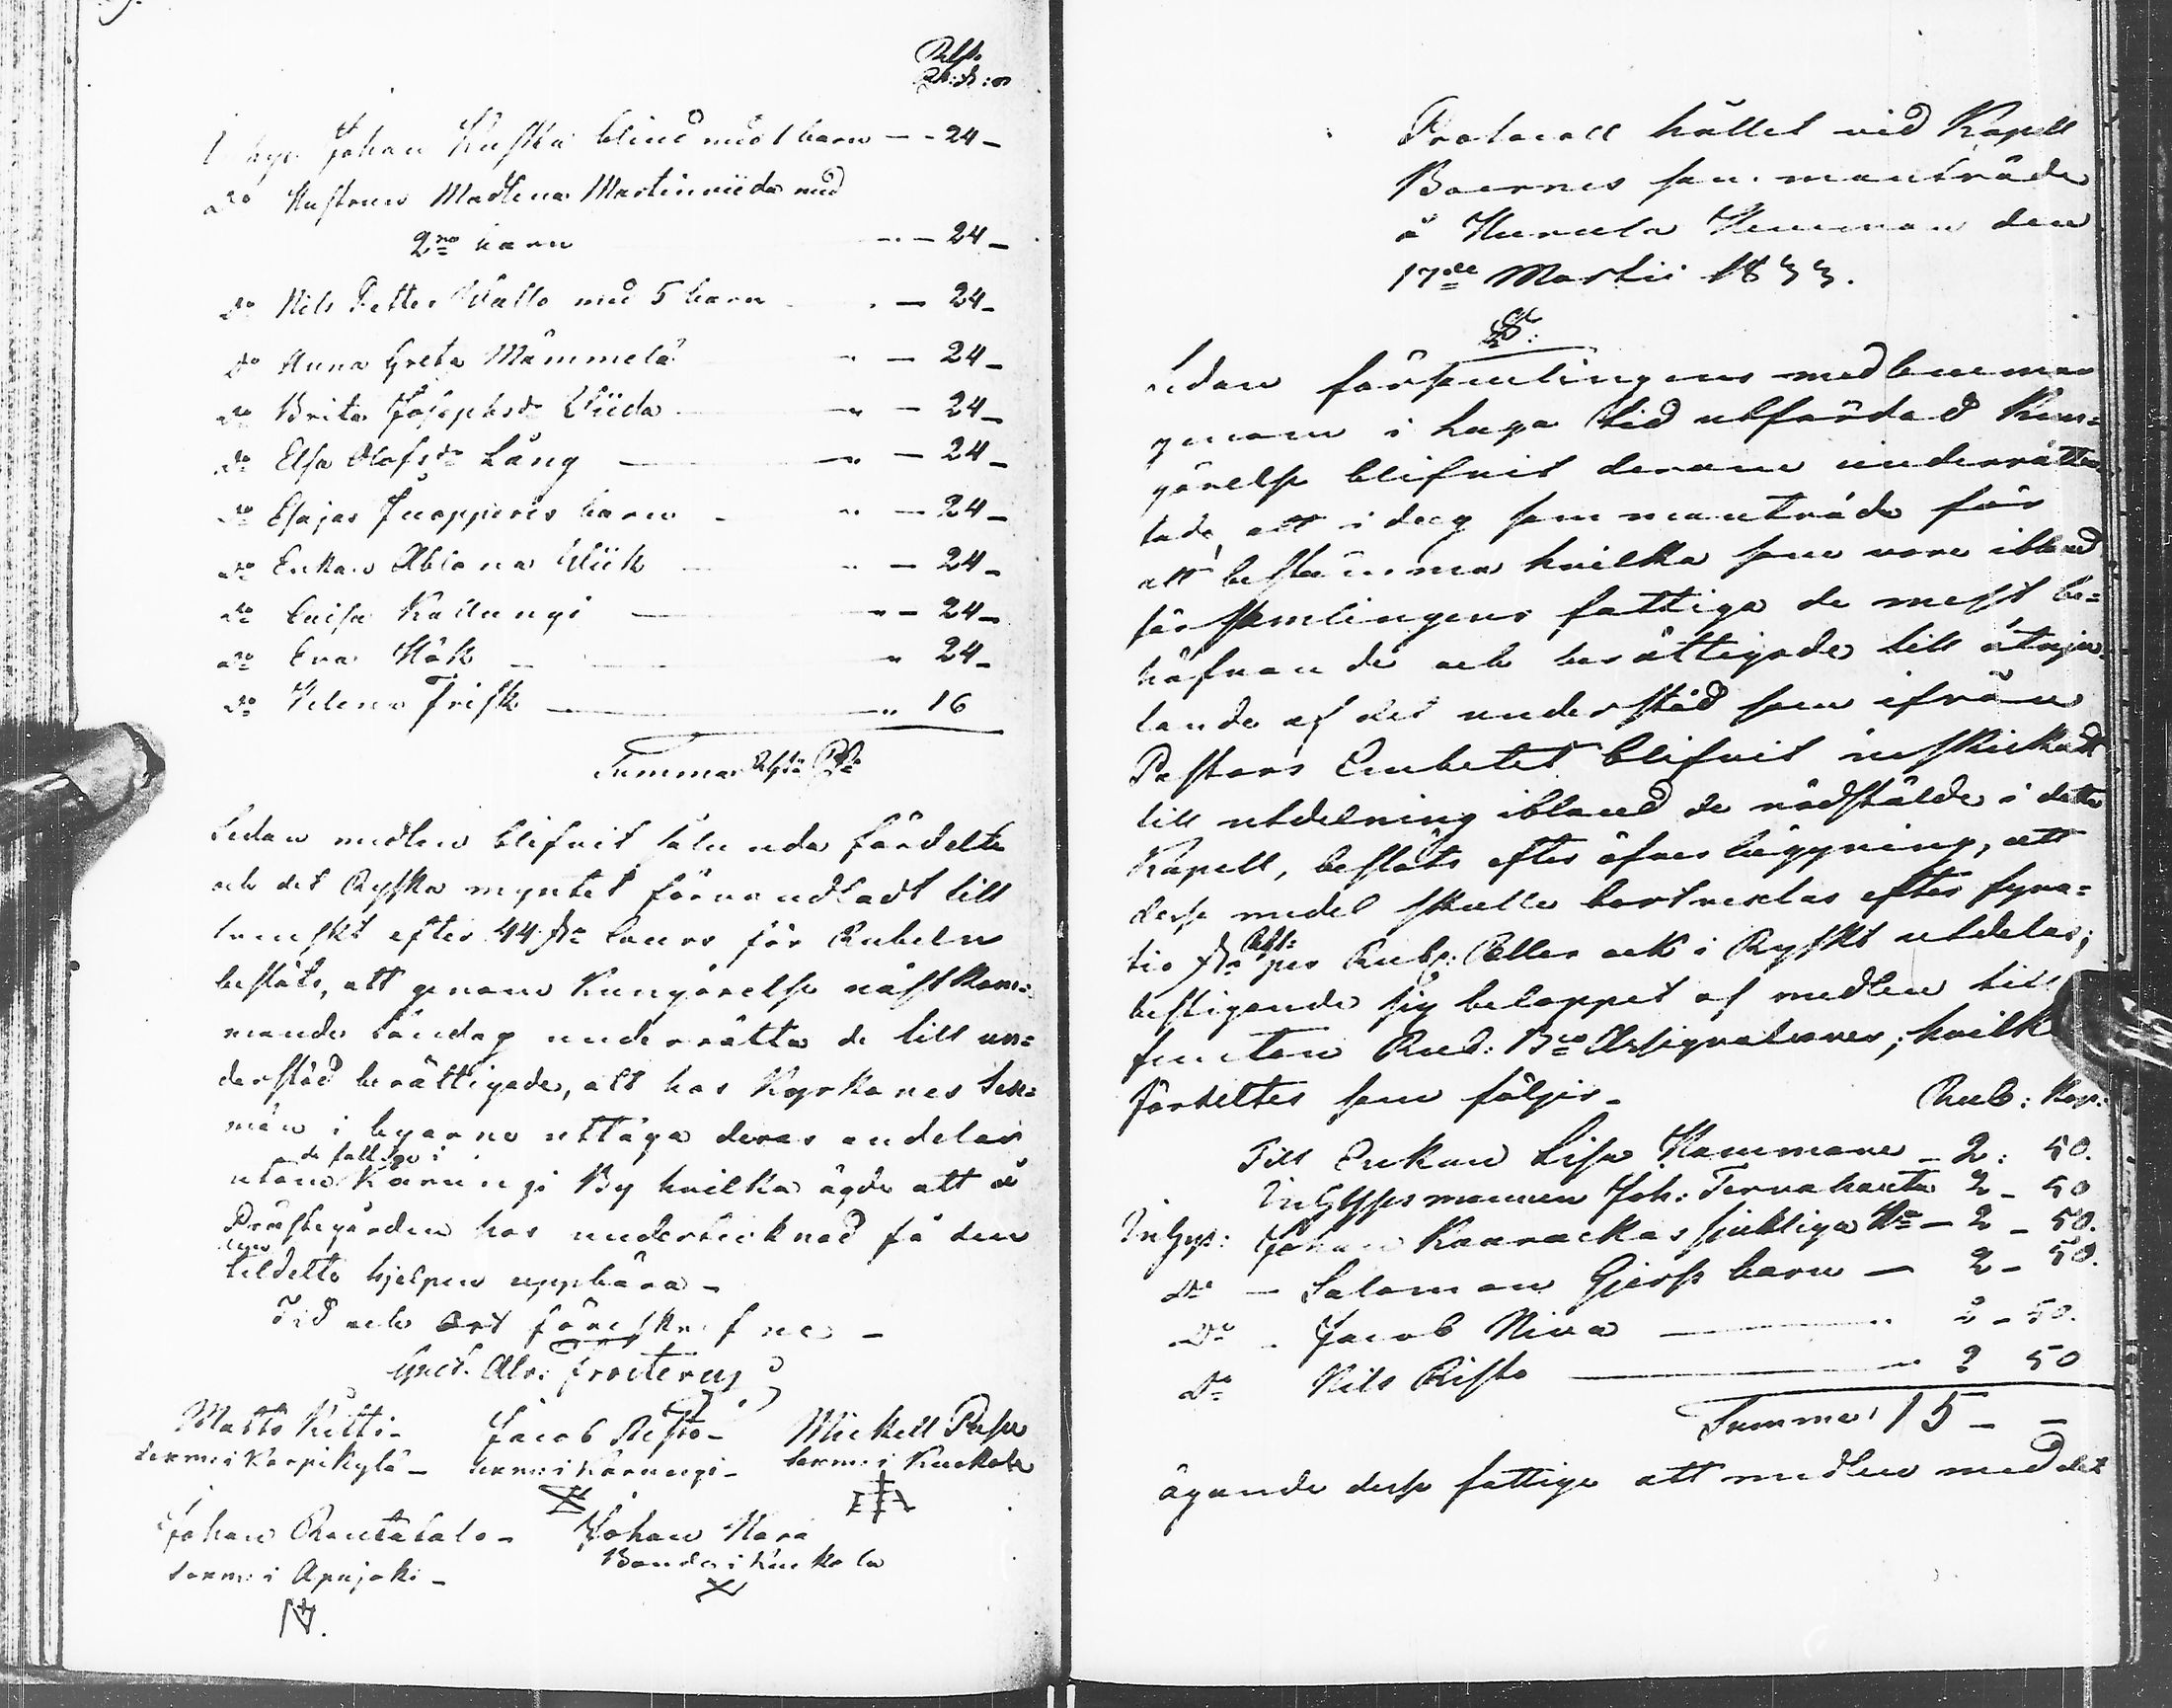 Rgs.
Rd: s: rs
Johan Kuska blind med 1 barn — - 24 -
do Hustrun Madlena Martinviida med
2ne barn — 24 -
do Nils Petter Wallo med 5 barn — 24 -
do Anna Greta Mämmelä " — 24 -
do Brita Josephsdr Viida " — 24 -
do Elsa Olofsdr Lång — " — 24 -
do Esajas Juopperis barn - " — 24 -
do Enkan Abiona Wiik " — 24 -
do Caisa Kallungi — " — 24 -
do Eva Hök — " 24 -
do Helena Frisk — " 16
Summa
Sedan medlen blifvit sålunda fördelte
och det Ryska myntet förvandladt till
svenskt efter 44 s. cours för Rubeln
beslöts, att genom Kungörelse nästkom-
mande Söndag underrätta de till un=
derstöd berättigade, att hos Kyrkones Sex=
män i byarne uttaga deras andelar
de fattige i
utom Karungi By hvilka ägde att å
Prästegården hos undertecknad få den
dem
tildelte hjelpen uppbära -
Tid och Ort föreskrefne -
Gust. Abr. Frosterus
Matts Kitti - Jacob Risto - Mickell Pesu
sexm: i Karpikylä - sexm: i Karungi - sexm: i Kuckola
Johan Rautasalo - Johan Hara
sexm: i Apajoki - Bonde i Kuckola
Protocoll hållet vid Kapell
Boernes sammanträde
å Kurula Hemman den
17de Martii 1833.
§:
Sedan församlingens medlemmar
genom i laga tid utfärdad Kun=
görelse blifvit derom underrätta
tade, att i dag sammanträda för
att bestämma hvilka som vore ibland
församlingens fattiga de mest be=
höfvande och berättigade till åtnju
tande af det understöd som ifrån
Pastors Embetet blifvit öfverskickadt
till utdelning ibland de nödstälde i detta
Kapell, beslöts efter öfverläggning, att
desse medel skulle bortvexlas efter fyra=
Rgs:
tio s. per Rub: Eller ock i Ryskt utdelas;
bestigande sig beloppet af medlen till
femton Rub: Bco Assignationer; hvilka
fördeltes som följer - Rub: Kop:
Till Enkan Lisa Hammare - 2: 50.
Inhysesmannen Joh: Ternahauta 2 - 50
Inhys: Johan Kaarackas sjukliga Hu — 2 - 50.
Do — Salomon Gjers barn — 2 - 50.
Do - Jacob Niva — 2 - 50.
Do Nils Risto — 2 50
Summa 15 - -
ägande desse fattige att medlen med det